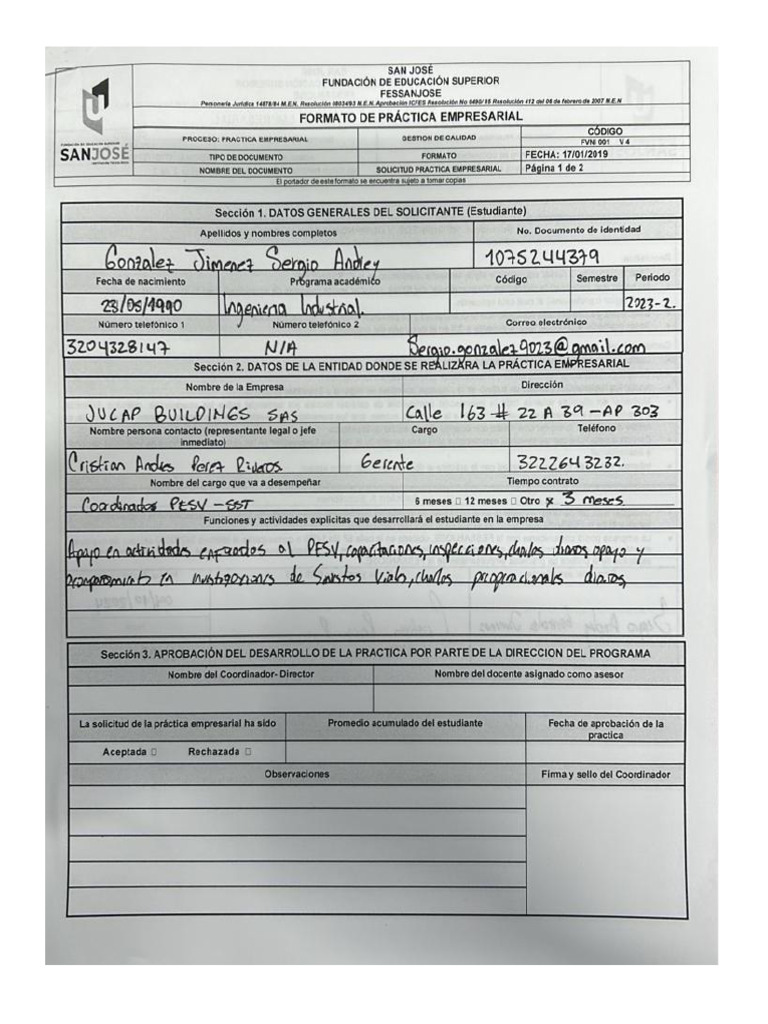 SAN JOSÉ
FUNDACIÓN DE EDUCACIÓN SUPERIOR
FESSANJOSE
Personería Jurídica 14878/84 M.E.N. Resolución
FORMATO DE PRÁCTICA EMPRESARIAL
SANJOSÉ
PROCESO: PRACTICA EMPRESARIAL GESTION DE CALIDAD CÓDIGO
FVN 001 V 4
TIPO DE DOCUMENTO FORMATO FECHA: 17/01/2019
NOMBRE DEL DOCUMENTO SOLICITUD PRACTICA EMPRESARIAL Página 1 de 2
El portador de este formato se encuentra sujeto a tomar copias
Sección 1. DATOS GENERALES DEL SOLICITANTE (Estudiante)
Apellidos y nombres completos No. Documento de identidad
Gonzalez Jimenez Sergio Andrey 1075244379
Fecha de nacimiento Programa académico Código Semestre Periodo
23/05/1990 Ingenieria Industrial. 2023-2.
Número telefónico 1 Número telefónico 2 Correo electrónico
3204328147 N/A Sergio.gonzalez9023@gmail.com
Sección 2. DATOS DE LA ENTIDAD DONDE SE REALIZARA LA PRÁCTICA EMPRESARIAL
Nombre de la Empresa Dirección
JUCAP BUILDINGS SAS Calle 163 # 22 A 39 - AP 303
Nombre persona contacto (representante legal o jefe inmediato) Cargo Teléfono
Cristian Andres Perez Riveros Gerente 3222643232.
Nombre del cargo que va a desempeñar Tiempo contrato
Coordinador PESV - SST 6 meses □ 12 meses □ Otro x 3 meses
Funciones y actividades explicitas que desarrollará el estudiante en la empresa
Apoyo en actividades enfocados al PESV, capacitaciones, inspecciones, charlas diarias apoyo y
en investigaciones de Viales, charlas diarias,
Sección 3. APROBACIÓN DEL DESARROLLO DE LA PRACTICA POR PARTE DE LA DIRECCION DEL PROGRAMA
Nombre del Coordinador- Director Nombre del docente asignado como asesor
La solicitud de la práctica empresarial ha sido Promedio acumulado del estudiante Fecha de aprobación de la practica
Aceptada □ Rechazada □
Observaciones Firma y sello del Coordinador